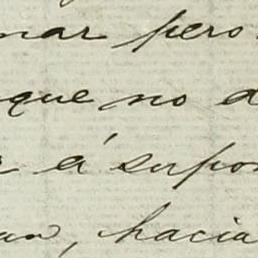 mar pero
que no
á supon
an, hacia